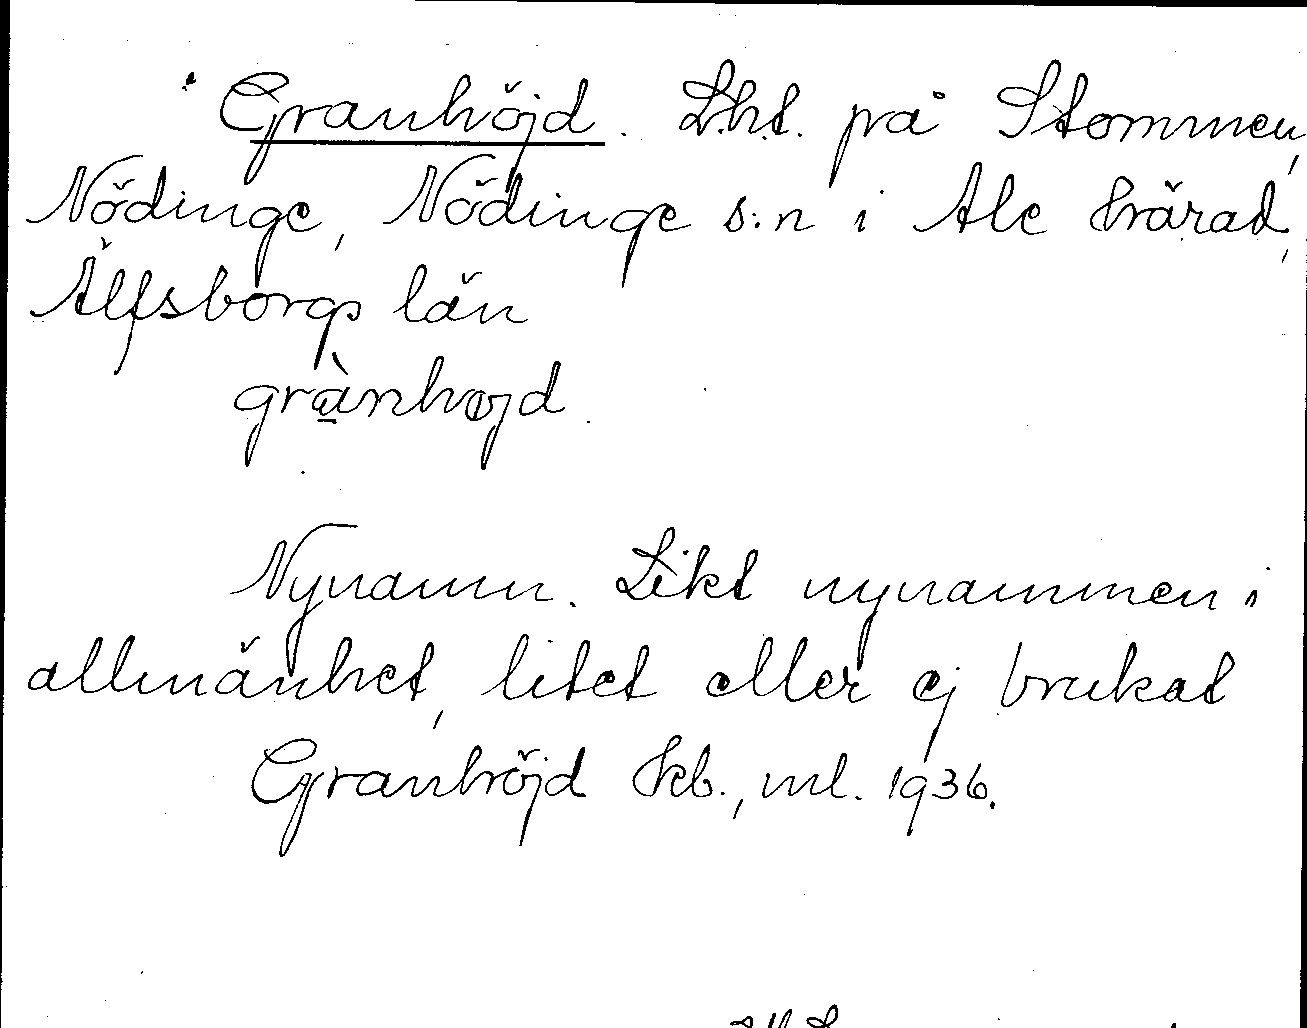 Granhöjd. Lht. på Stommen,
Nödinge, Nödinge s:n i Ale härad,
Älfsborgs län
grànhøjd.
Nynamn. Likt nynammen i
allmänhet, litet eller ej brukat
Granhöjd Jkb., ml. 1936.